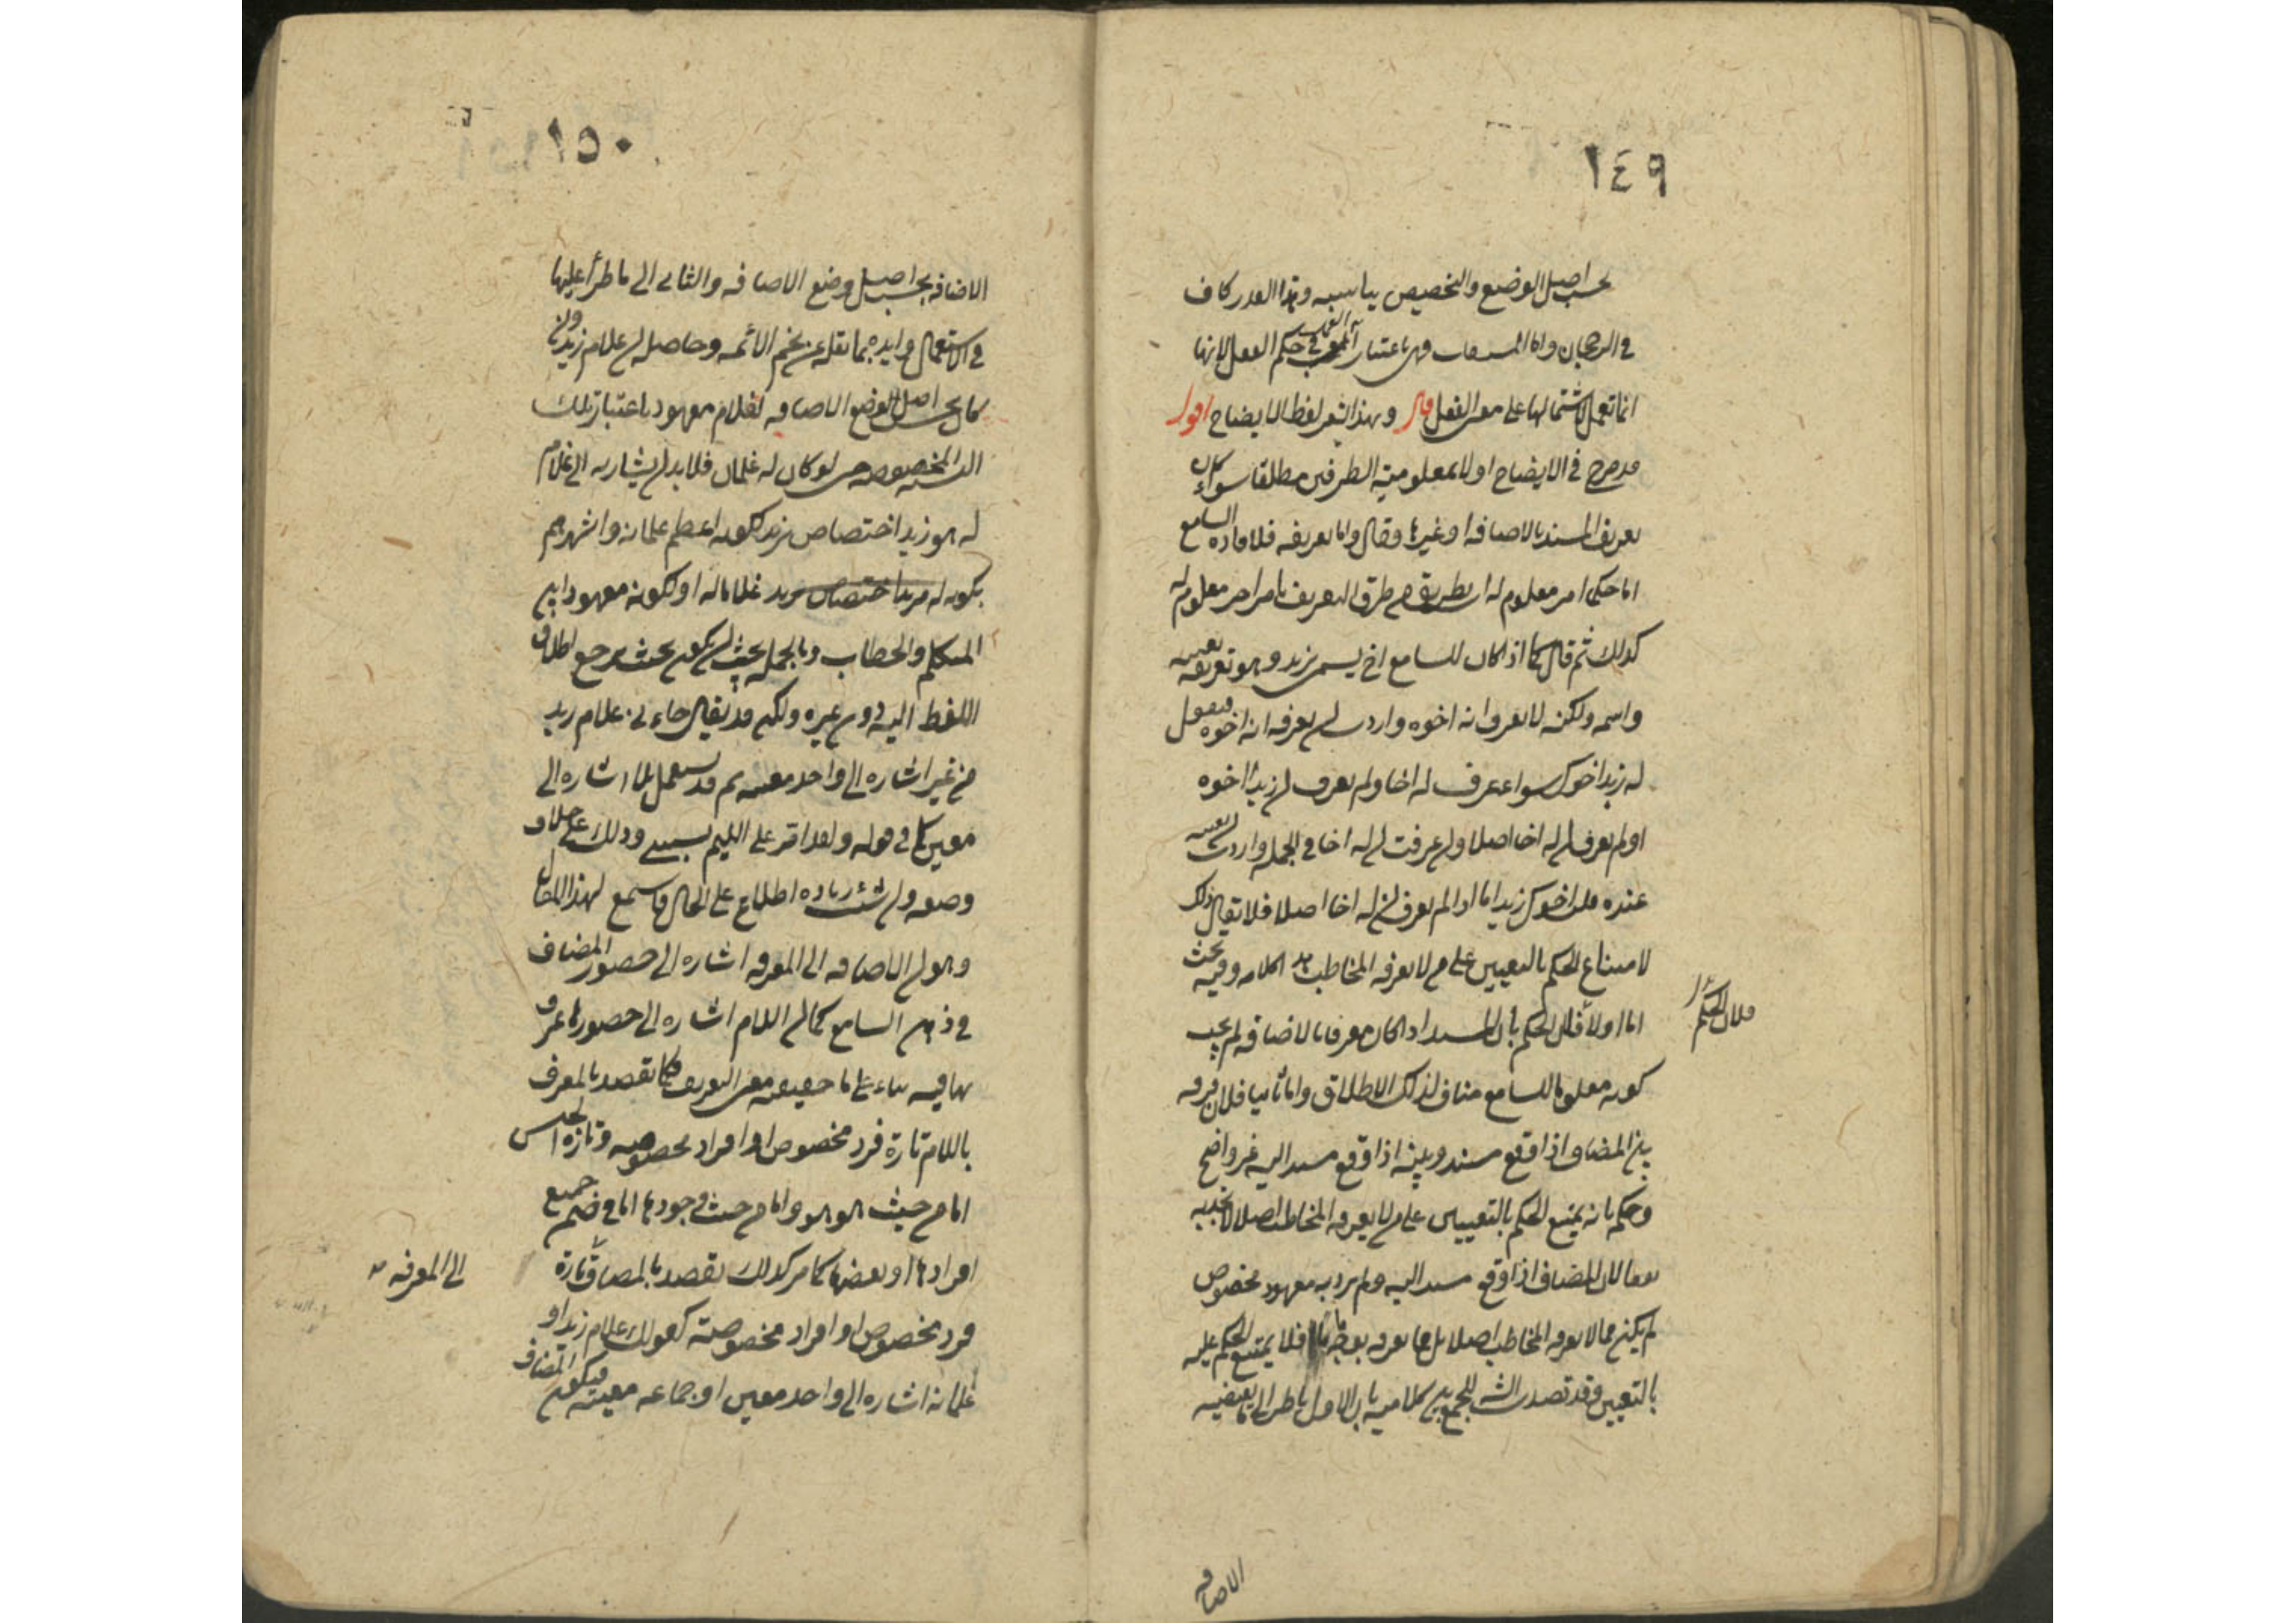 ١٤٩
بحسب اصل الوضع والتخصيص يناسبه وهذا القدر كاف
في الرجحان واما المشتقات فهى باعتبار العمل في حكم الفعل لانها
انما تعمل لاشتمالها على معنى الفعل قال وبهذا اشعر لفظ الايضاح اقول
قد صرح في الايضاح اولا بمعلومية الطرفين مطلقا سواء كان
تعريف المسند بالاضافة او غيرها وقال واما تعريفه فلافادة السامع
اما حكما على امر معلوم له بطريق من طرق التعريف بامر اخر معلوم له
كذلك ثم قال كما اذا كان للسامع اخ يسمى زيدا وهو يعرفه بعينه
واسمه ولكنه لا يعرف انه اخوه واردت ان تعرفه انه اخوه فتقول
له زيد اخوك سواء عرف له اخا ولم يعرف ان زيدا اخوه
او لم يعرف ان له اخا اصلا وان عرفت ان له اخا في الجملة واردت ان تعينه
عنده قلت اخوك زيد اما اذا لم يعرف ان له اخا اصلا فلا تقال ذلك
لامتناع الحكم بالتعيين على من لا يعرفه المخاطب هذا كلامه وفيه بحث
اما اولا فلان الحكم بان المسند اذا كان معرفا بالاضافة لم يجب
فلان الحكم
كونه معلوما للسامع مناف لذلك الاطلاق واما ثانيا فلان فرقه
بين المضاف اذا وقع مسندا وبينه اذا وقع مسندا اليه غير واضح
وحكمه بانه يمتنع الحكم بالتعيين على من لا يعرفه المخاطب اصلا لا يجديه
نفعا لان المضاف اذا وقع مسندا اليه ولم يرد به معهود مخصوص
لم يكن مما لا يعرفه المخاطب اصلا بل مما يعرفه بوجه ما فلا يمتنع الحكم عليه
بالتعيين وقد تصدى الشه للجمع بين كلاميه بان الاول ناظر الى ما يقتضيه
الاضافه
١٥٠
الاضافة بحسب اصل وضع الاضافه والثانى الى ما طرأ عليها
في الاستعمال وايده بما نقله عن نجم الائمه وحاصله ان غلام زيد وان
كان بحسب اصل الوضع الاضافه لغلام معهود باعتبار تلك
النسبة المخصوصه حتى لو كان له غلمان فلا بد ان يشار به الى غلام
له مزيد اختصاص بزيد لكونه اعظم غلمانه واشهرهم
بكونه غلاما له او لكونه معهودا بين
المتكلم والمخاطب وبالجمله بحيث يكون بحيث يرجع اطلاق
اللفظ اليه دون غيره ولكن قد يقال جاءنى غلام زيد
من غير اشاره الى واحد معين ثم قد يستعمل بلا اشاره الى
معين كما في قوله ولقد امر على اللئيم يسبنى وذلك على خلاف
وضعه وان شئت زياده اطلاع على الحال فاستمع لهذا المقال
وهو ان الاضافه الى المعرفه اشاره الى حضور المضاف
في ذهن السامع كما ان اللام اشاره الى حضور ما عرف
بها فيه بناء على ما حقيقته معنى التعريف فكما يقصد بالمعرف
باللام تارة فرد مخصوص او افراد مخصوصه وتارة الجنس
اما من حيث هو هو واما من حيث وجودها اما في ضمن جميع
افرادها او بعضها كما مر كذلك يقصد بالمضاف تارة
الى المعرفه
فرد مخصوص او افراد مخصوصة كقولك غلام زيد او
غلمانه اشاره الى واحد معين او جماعه معينه فيكون المضاف